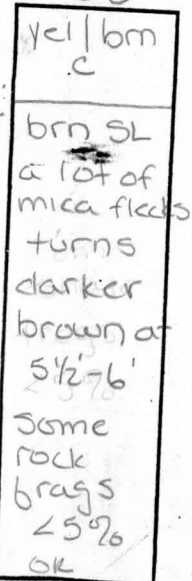 yel/brn
C
brn SL
a lot of
mica flecks
turns
darker
brown at
5 1/2'-6'
some
rock
frags
<5%
OK